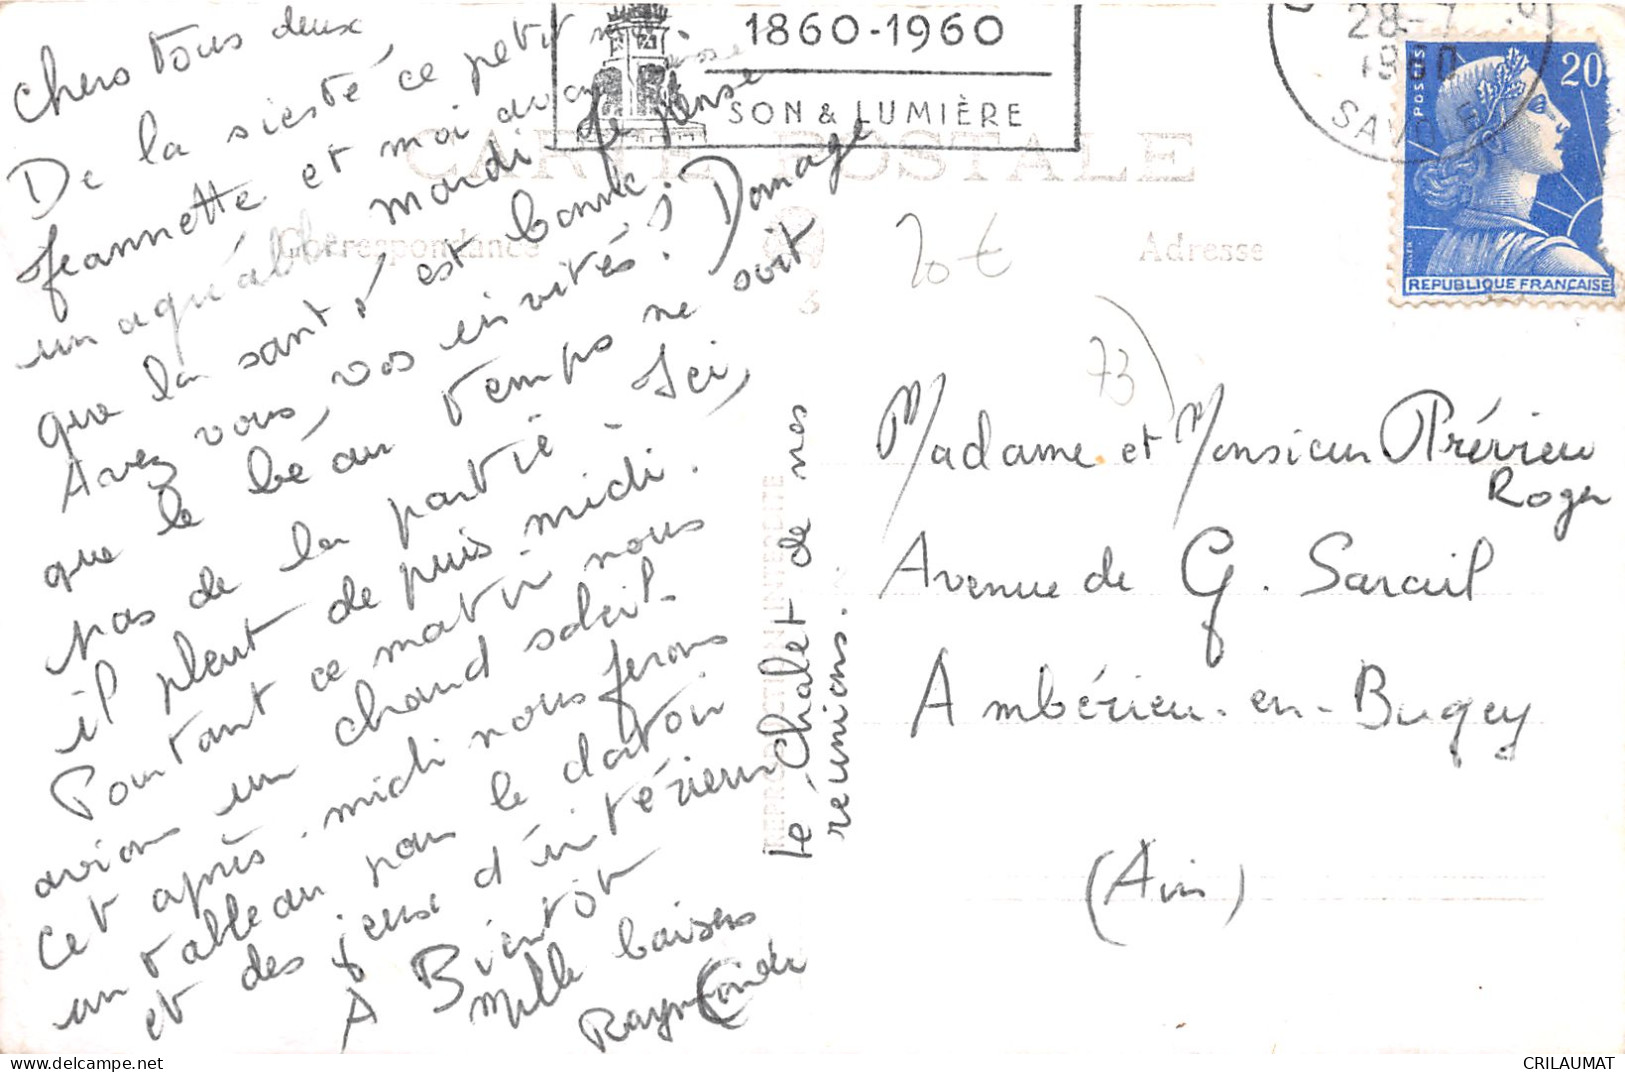 1860-1960
SON & LUMIÈRE
28-7
1960
SAVOIE
POSTES
20
REPUBLIQUE FRANÇAISE
CARTE POSTALE
Correspondance
Adresse
REPRODUCTION INTERDITE
20 €
73
Chers tous deux
De la sieste ce petit mot.
Jeannette et moi avons
un mardi. Je pense
que la santé est bonne.
Avez vous vos invités? Domage
que le béau temps ne soit
pas de la partie. Ici,
il pleut de puis midi.
Pourtant ce matin nous
avions un chaud soleil.
Cet après-midi nous ferons
un tableau pour le
et des jeux d'intérieur
A Bientôt
Mille baisers
Raymonde
Le Chalet de nos
réunions.
Madame et Monsieur Prévieu
Roger
Avenue de G. Sarail
Ambérieu-en-Bugey
(Ain)
CRILAUMAT